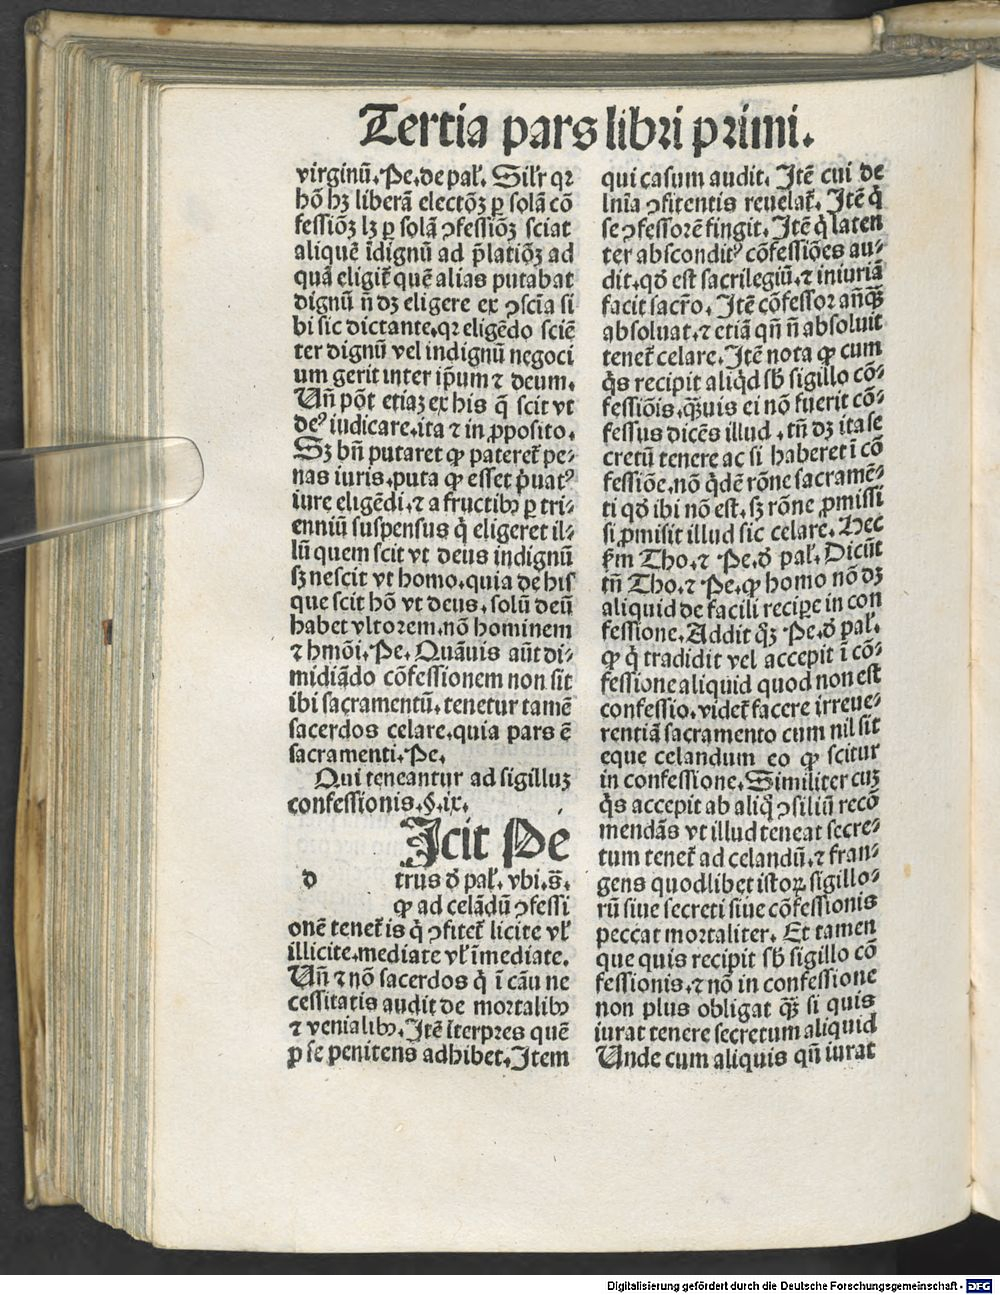 Tertia pars libri primi.
virginū. Pe. de pal̓. Sil̓r qꝛ
hō hꝫ liberā electōꝫ ꝑ solā cō
fessiōꝫ lꝫ ꝑ solā ꝯfessiōꝫ sciat
aliquē īdignū ad p̄latiōꝫ ad
quā eligit̄ quē alias putabat
dignū n̄ dꝫ eligere ex ꝯsciā si
bi sic dictante. qꝛ eligēdo sciē
ter dignū vel indignū negoci
um gerit inter ip̄um ⁊ deum.
Un̄ pōt etiaꝫ ex his q̄ scit vt
deꝰ iudicare. ita ⁊ in ꝓposito.
Sꝫ bn̄ putaret ꝙ pateret̄ pe⸗
nas iuris. puta ꝙ esset p̄uatꝰ
iure eligēdi. ⁊ a fructibꝰ ꝑ tri⸗
enniū suspensus q̇ eligeret il⸗
lū quem scit vt deus indignū
sꝫ nescit vt homo. quia de his
que scit hō vt deus. solū deū
habet vltorem. nō hominem
⁊ hmōi. Pe. Quāuis aūt di⸗
midiādo cōfessionem non sit
ibi sacramentū. tenetur tamē
sacerdos celare. quia pars ē
sacramenti. Pe.
Qui teneantur ad sigilluꝫ
confessionis. §. ix.
Icit Pe
d trus d̓ pal̓. vbi. s̄.
ꝙ ad celādū ꝯfessi
onē tenet̄ is q̇ ꝯfitet̄ licite vl̓
illicite. mediate vl̓ īmediate.
Un̄ ⁊ nō sacerdos q̇ ī cāu ne
cessitatis audit de mortalibꝰ
⁊ venialibꝰ. Itē īterpres quē
ꝑ se penitens adhibet. Item
qui casum audit. Itē cui de
lnīa ꝯfitentis reuelat̄. Itē q̇
se ꝯfessorē fingit. Itē q̇ laten
ter absconditꝰ cōfessiōes au⸗
dit. qd̓ est sacrilegiū. ⁊ iniuriā
facit sacr̄o. Itē cōfessor an̄qꝫ̄
absoluat. ⁊ etiā qn̄ n̄ absoluit
tenet̄ celare. Itē nota ꝙ cum
q̇s recipit aliq̇d sb̄ sigillo cō⸗
fessiōis. qꝫ̄uis ei nō fuerit cō⸗
fessus dicēs illud. tn̄ dꝫ ita se
cretū tenere ac si haberet ī cō
fessiōe. nō q̇dē rōne sacramē⸗
ti qd̓ ibi nō est. sꝫ rōne ꝓmissi
si ꝓmisit illud sic celare. Hec
ẜm Tho. ⁊ Pe. d̓ pal̓. Dicūt
tn̄ Tho. ⁊ Pe. ꝙ homo nō dꝫ
aliquid de facili recipe in con
fessione. Addit qꝫ̄ Pe. d̓ pal̓.
ꝙ q̇ tradidit vel accepit ī cō⸗
fessione aliquid quod non est
confessio. videt̄ facere irreue⸗
rentiā sacramento cum nil sit
eque celandum eo ꝙ scitur
in confessione. Similiter cuꝫ
q̇s accepit ab aliq̇ ꝯsiliū recō
mendās vt illud teneat secre⸗
tum tenet̄ ad celandū. ⁊ fran⸗
gens quodlibet istoꝝ sigillo⸗
rū siue secreti siue cōfessionis
peccat mortaliter. Et tamen
que quis recipit sb̄ sigillo cō
fessionis. ⁊ nō in confessione
non plus obligat qꝫ̄ si quis
iurat tenere secretum aliquid
Unde cum aliquis qn̄ iurat
Digitalisierung gefördert durch die Deutsche Forschungsgemeinschaft - DFG